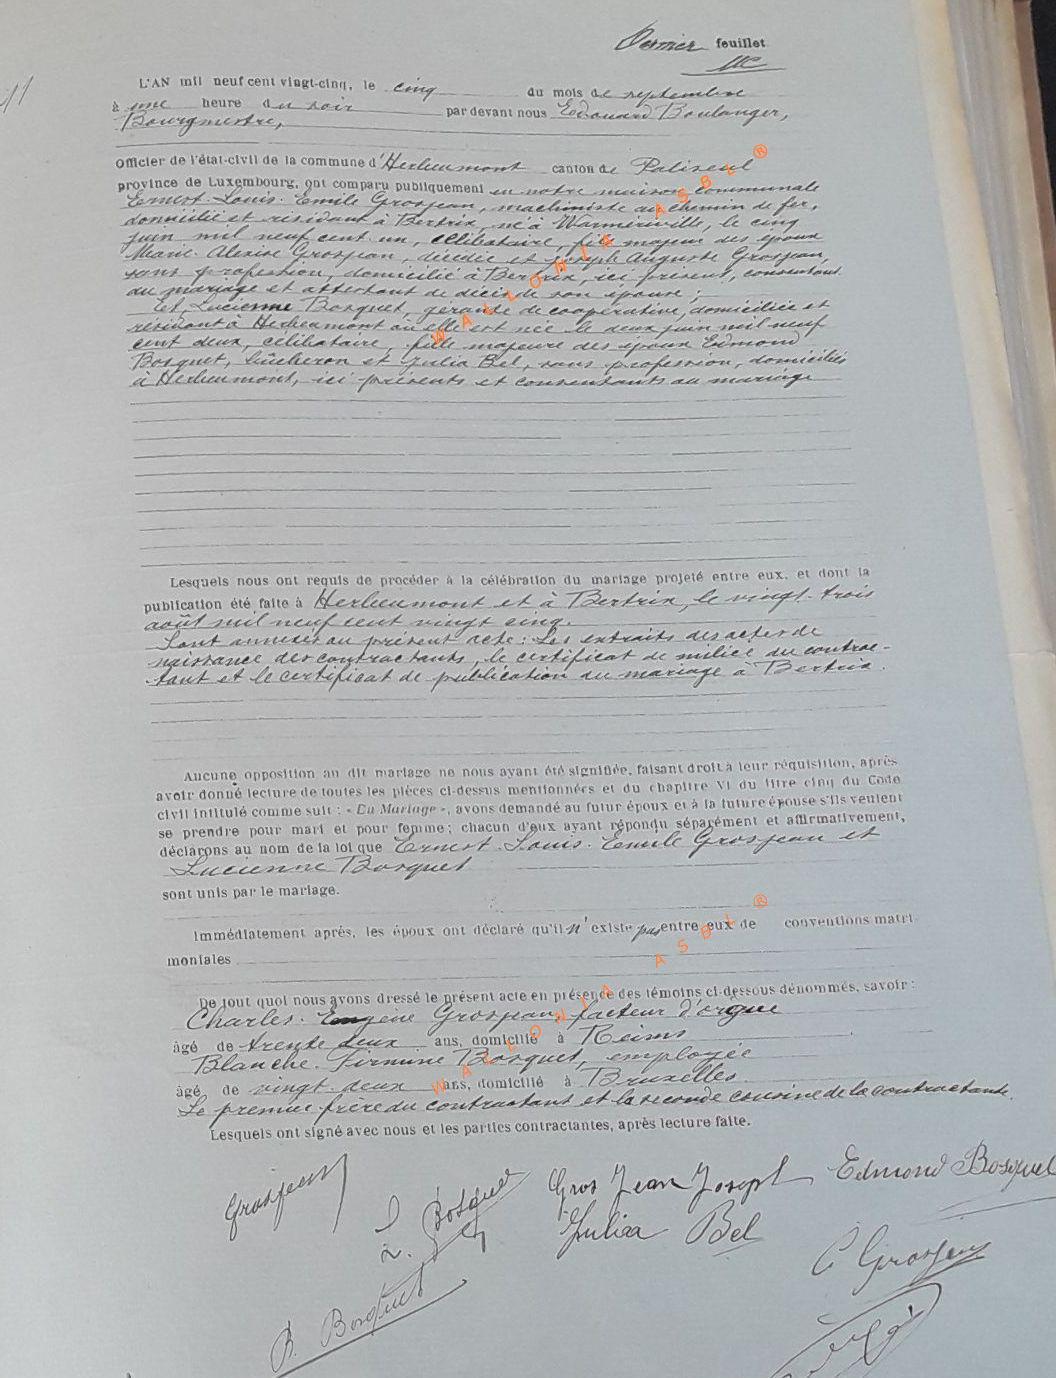 Dernier feuillet
11
L'AN mil neuf cent vingt-cinq, le cinq du mois de septembre
à une heure du soir par devant nous Edouard Boulanger,
Bourgmestre,
Officier de l'état-civil de la commune d'Herbeumont canton de Paliseul
province de Luxembourg, ont comparu publiquement en notre maison communale
Ernest-Louis-Emile Grosjean, machiniste au chemin de fer,
domicilié et résidant à Bertrix, né à Warmériville, le cinq
juin mil neuf cent un, célibataire, fils majeur des époux
Marie-Alexise Grosjean, décédée et Joseph Auguste Grosjean,
sans profession, domicilié à Bertrix, ici présent, consentant
au mariage et attestant de décès de son épouse ;
Et, Lucienne Bosquet, gérante de coopérative, domiciliée et
résidant à Herbeumont où elle est née le deux juin mil neuf
cent deux, célibataire, fille majeure des époux Edmond
Bosquet, bûcheron et Julia Bel, sans profession, domiciliés
à Herbeumont, ici présents et consentants au mariage
Lesquels nous ont requis de procéder à la célébration du mariage projeté entre eux, et dont la
publication été faite à Herbeumont et à Bertrix, le vingt-trois
août mil neuf cent vingt cinq.
Sont annexés au présent acte : Les extraits des actes de
naissance des contractants, le certificat de milice du contrac-
tant et le certificat de publication du mariage à Bertrix.
Aucune opposition au dit mariage ne nous ayant été signifiée, faisant droit à leur réquisition, après
avoir donné lecture de toutes les pièces ci-dessus mentionnées et du chapitre VI du titre cinq du Code
civil intitulé comme suit : « Du Mariage », avons demandé au futur époux et à la future épouse s'ils veulent
se prendre pour mari et pour femme ; chacun d'eux ayant répondu séparément et affirmativement,
déclarons au nom de la loi que Ernest-Louis-Emile Grosjean et
Lucienne Bosquet
sont unis par le mariage.
Immédiatement après, les époux ont déclaré qu'il n'existe pas entre eux de conventions matri-
moniales
De tout quoi nous avons dressé le présent acte en présence des témoins ci-dessous dénommés, savoir :
Charles-Eugène Grosjean, facteur d'orgue
âgé de trente deux ans, domicilié à Reims
Blanche-Firmine Bosquet, employée
âgé de vingt-deux ans, domicilié à Bruxelles
Le premier frère du contractant et la seconde cousine de la contractante.
Lesquels ont signé avec nous et les parties contractantes, après lecture faite.
Grosjean
L. Bosquet
Gros Jean Joseph
Edmond Bosquet
Julia Bel
C Grosjean
B. Bosquet
WALLONIA ASBL ®
WALLONIA ASBL ®